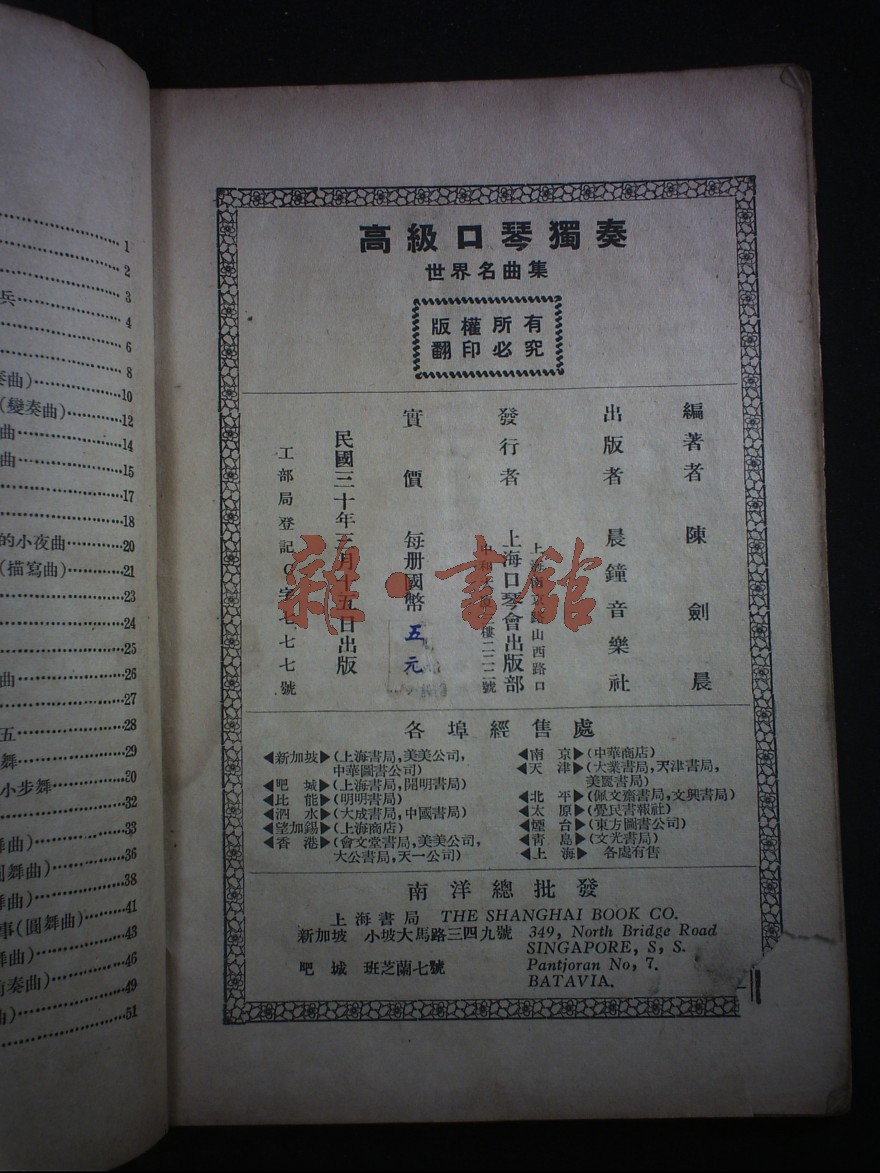 1
2
3
兵 4
6
8
奏曲) 10
(變奏曲) 12
曲 14
曲 15
17
18
的小夜曲 20
(描寫曲) 21
23
24
25
曲 26
27
五 28
舞 29
小步舞 30
32
舞曲) 33
圓舞曲) 36
舞曲) 38
事(圓舞曲) 41
舞曲) 43
前奏曲) 46
曲) 49
51
高級口琴獨奏
世界名曲集
版權所有
翻印必究
編著者 陳劍晨
出版者 晨鐘音樂社
上海南京路山西路口
發行者 上海口琴會出版部
中和大樓二二二號
實價 每册國幣 五元
民國三十年三月十五日出版
工部局登記C字七七七號
各埠經售處
◀新加坡▶(上海書局,美美公司,
中華圖書公司)
◀吧城▶(上海書局,開明書局)
◀比能▶(明明書局)
◀泗水▶(大成書局,中國書局)
◀望加錫▶(上海商店)
◀香港▶(會文堂書局,美美公司,
大公書局,天一公司)
◀南京▶(中華商店)
◀天津▶(大業書局,天津書局,
美麗書局)
◀北平▶(佩文齋書局,文興書局)
◀太原▶(覺民書報社)
◀煙台▶(東方圖書公司)
◀靑島▶(文光書局)
◀上海▶ 各處有售
南洋總批發
上海書局 THE SHANGHAI BOOK CO.
新加坡 小坡大馬路三四九號 349, North Bridge Road
SINGAPORE, S, S.
吧城 班芝蘭七號 Pantjoran No, 7.
BATAVIA.
雜·書館